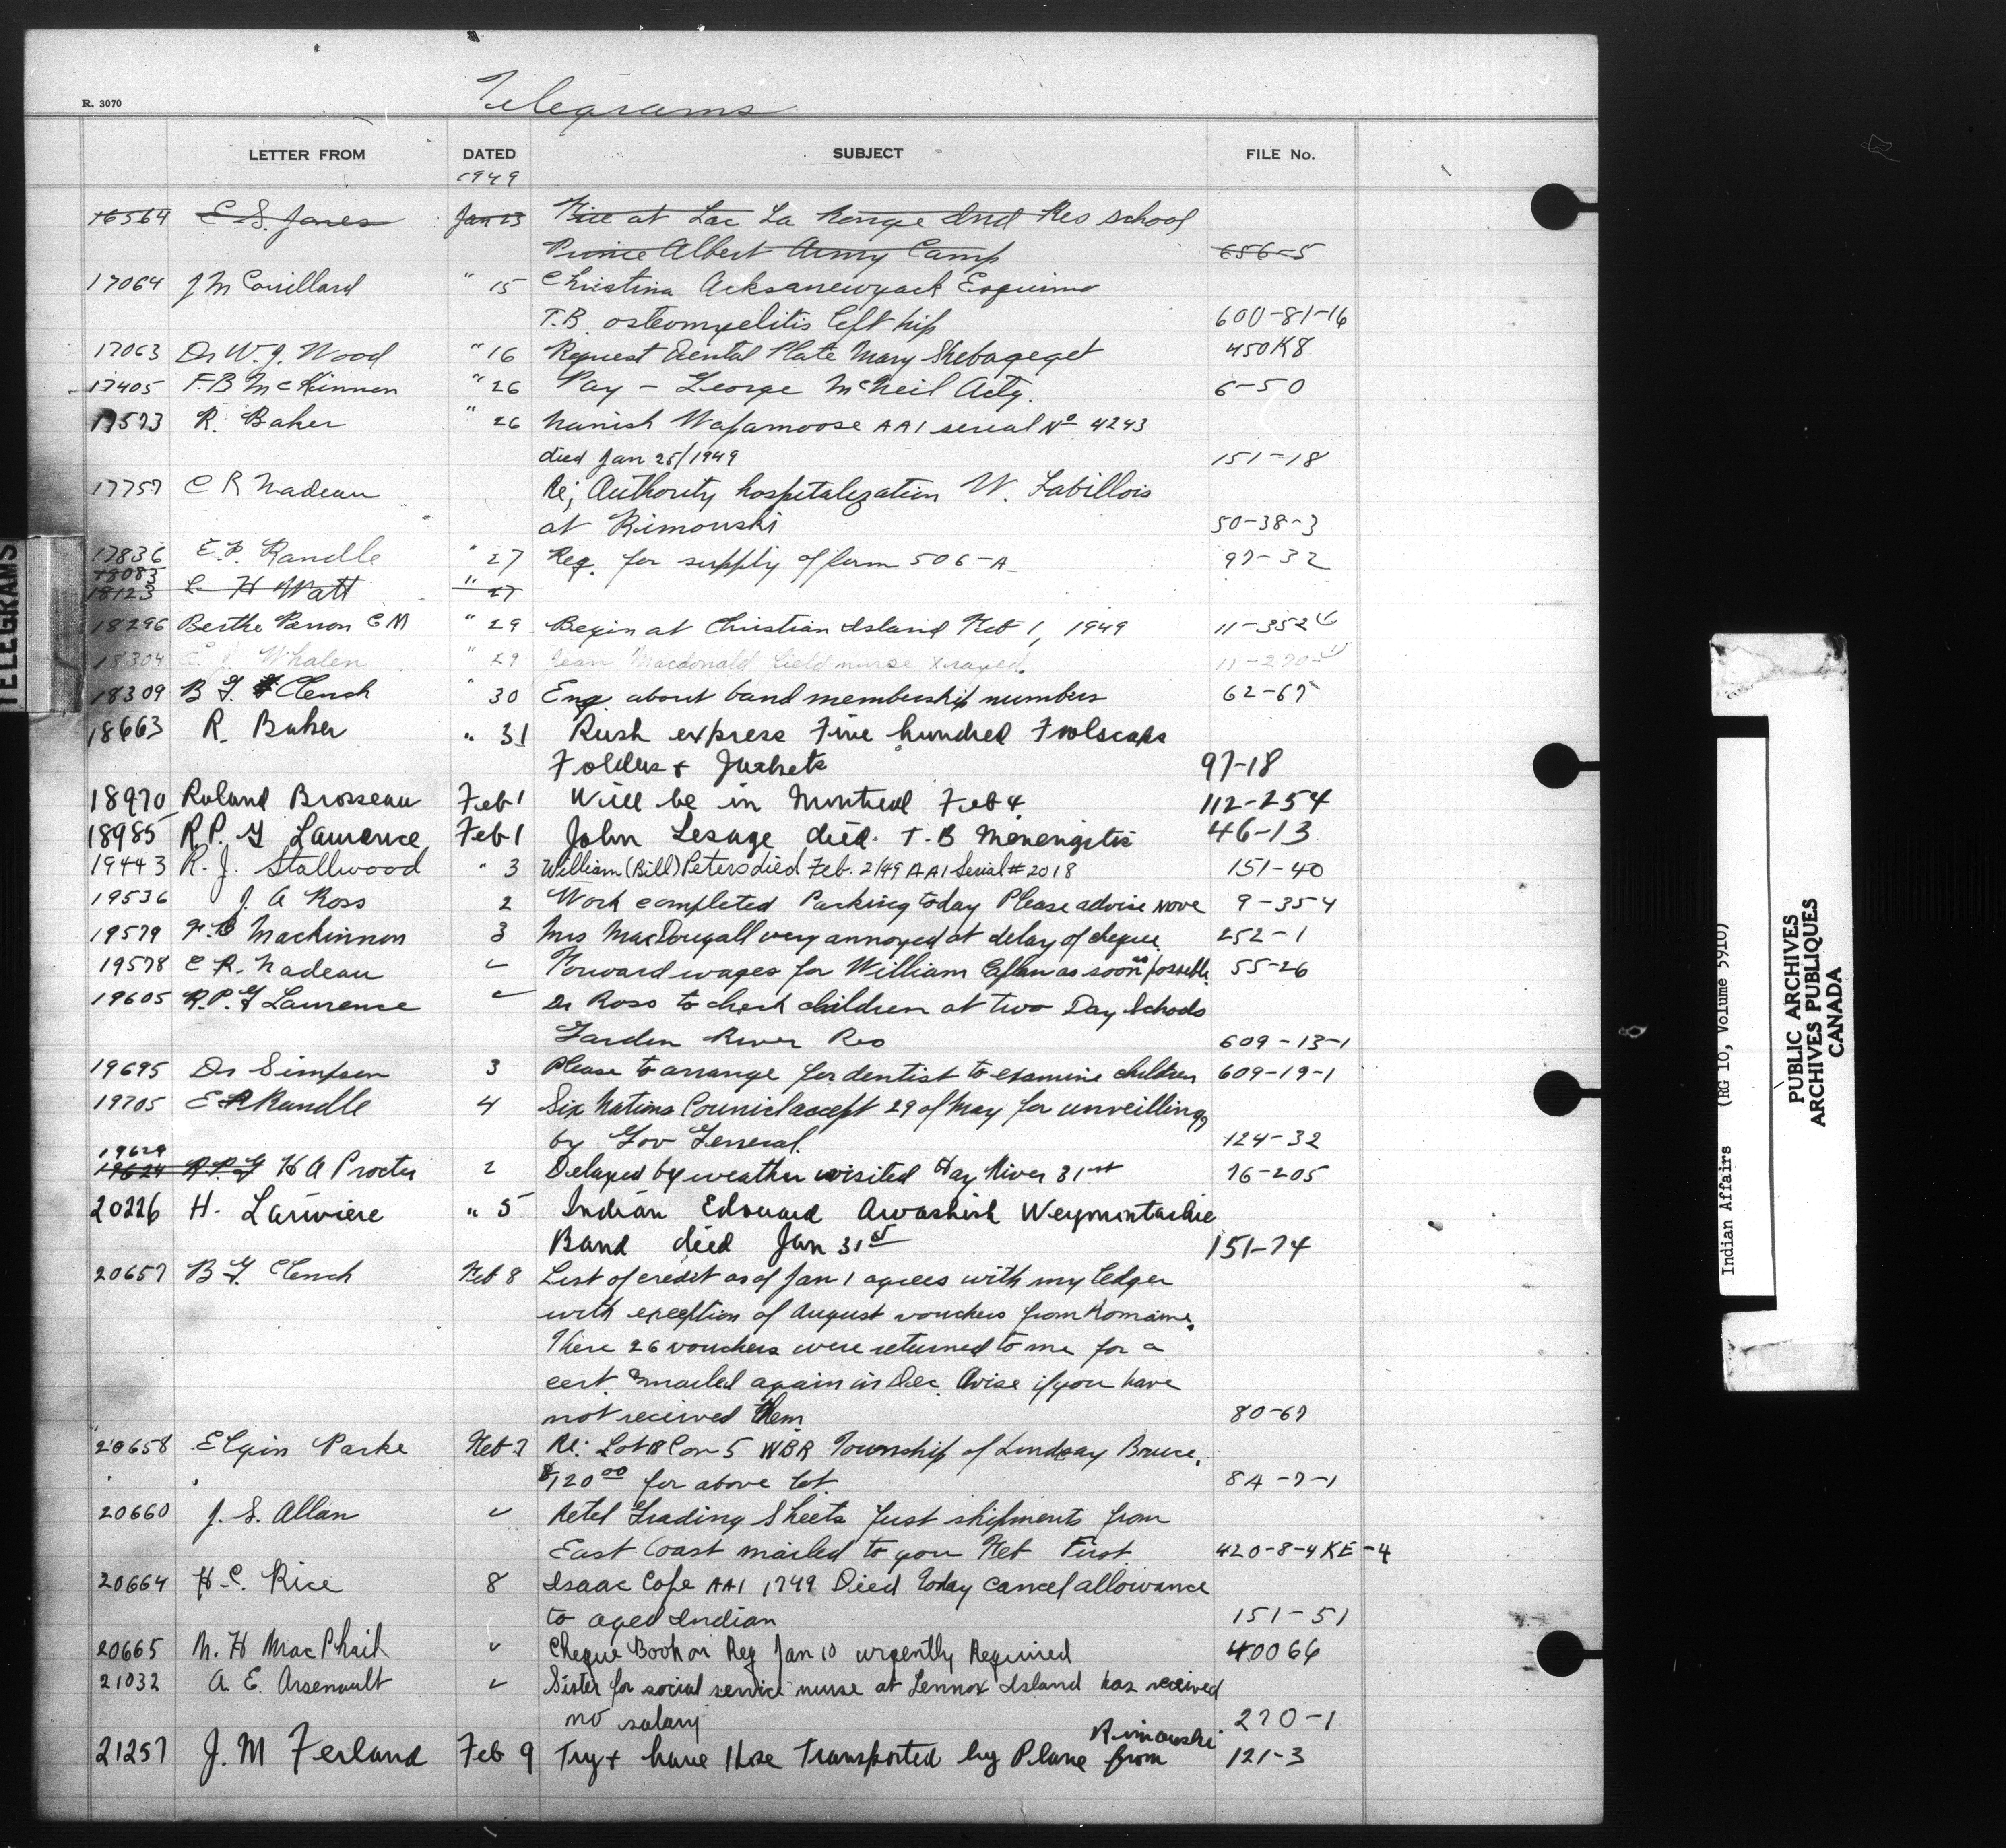 Telegrams
R. 3070
LETTER FROM DATED SUBJECT FILE No.
1949
16564 E S. Jones Jan 13 Fire at Lac La Ronge Ind Res school
Prince Albert Army Camp 656-5
17064 J M Couillard " 15 Christina Acksanewyack Esquimo
T.B. osteomyelitis left hip 600-81-16
17063 Dr W. J. Wood " 16 Request Dental Plate Mary Shebageget 450K8
17405 F.B McKinnon " 26 Pay - George McNeil Actg. 6-50
17573 R. Baker " 26 Nanish Wapamoose AAI serial No 4243
died Jan 25/1949 151-18
17757 C R Nadeau Re; Authority hospitalization W. Labillois
at Rimouski 50-38-3
17836 E. P. Randle " 27 Req. for supply of form 506-A 97-32
18083
18123 H Watt " 27
18296 Berthe Perron C M " 29 Begin at Christian Island Feb 1, 1949 11-352
18304 Whalen " 29 Jean Macdonald field nurse xrayed. 11-270
18309 B G Clench " 30 Enq. about band membership numbers 62-67
18663 R. Baker " 31 Rush express Five hundred Foolscaps
Folders + Jackets 97-18
18970 Roland Brosseau Feb 1 Will be in Montreal Feb 4 112-254
18985 R.P. G Laurence Feb 1 John Lesage died. T.B Menengitis 46-13
19443 R. J. Stallwood " 3 William (Bill) Peters died Feb. 2/49 AAI Serial # 2018 151-40
19536 J. A Ross 2 Work completed Parking today Please advise move 9-354
19579 F.B Mackinnon 3 Mrs MacDougall very annoyed at delay of cheque 252-1
19578 C R. Nadeau " Forward wages for William as soon as possible. 55-26
19605 R.P. G Laurence " Dr Ross to check children at two Day Schools
Garden River Res 609-13-1
19695 Dr Simpson 3 Please to arrange for dentist to examine children 609-19-1
19705 E P Randle 4 Six Nations Council accept 29 of May for unveilling
by Gov General. 124-32
19629
19624 R.P.G H A Procter 2 Delayed by weather visited Hay River 31st 76-205
20226 H. Larivière " 5 Indian Edouard Awashish Weymintachie
Band died Jan 31st 151-74
20657 B G Clench Feb 8 List of credit as of Jan 1 agrees with my ledger
with exception of August vouchers from Romaine.
These 26 vouchers were returned to me for a
cert. & mailed again in Dec. Avise if you have
not received them 80-67
20658 Elgin Parke Feb 7 Re: Lot 8 Con 5 WBR Township of Lindsay Bruce.
$120.00 for above lot 8A-7-1
20660 J. S. Allan " Retel Grading Sheets Just shipments from
East Coast mailed to you Feb First 420-8-4 KE-4
20664 H. C. Rice 8 Isaac Cope AAI 1749 Died Today cancel allowance
to aged Indian 151-51
20665 N. H MacPhail " Cheque Book on Req Jan 10 urgently Required 40066
21032 A. E. Arsenault " Sister for social service nurse at Lennox Island has received
no salary 270-1
Rimouski
21257 J. M Ferland Feb 9 Try + have Hose Transported by Plane from 121-3
TELEGRAMS
Indian Affairs (RG 10, Volume 5910)
PUBLIC ARCHIVES
ARCHIVES PUBLIQUES
CANADA